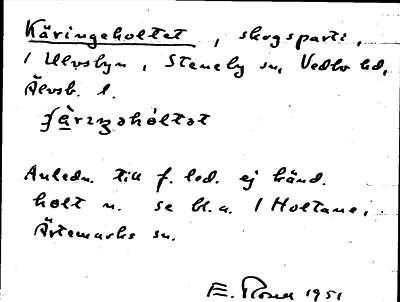 Käringeholtet, skogsparti,
i Ulvsbyn, Steneby sn, Vedbo hd,
Älvsb. l.
ʃὰrɪŋəhόltət
Anledn. till f. led. ej känd.
holt n. se bl.a. i Holtane,
Ärtemarks sn.
E. 1951